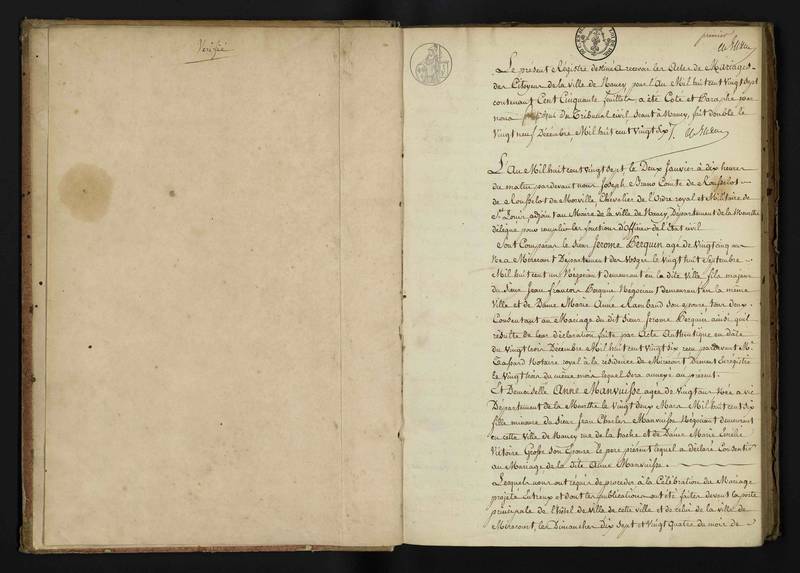 Vérifié
premier
Le présent Régistre destiné a recevoir les Actes de Mariages
des Citoyens de la ville de Nancy, pour l'an Mil huit cent vingt sept
contenant Cent Cinquante feuillets, a été Coté et Paraphé par
nous du Tribunal civil, séant à Nancy, fait double le
Vingt neuf Décembre, Mil huit cent Vingt Six.
L'An Mil huit cent vingt sept, le Deux Janvier à dix heures
du matin, pardevant nous Joseph Comte de
de Morville, Chevalier de l'Ordre royal et Militaire de
St Louis, adjoint au Maire de la ville de Nancy, Département de la Meurthe
délégué pour remplir les fonctions d'Officier de l'état civil
Sont Comparus le Sieur Jerome Berguin agé de Vingt cinq ans
Né a Mirecourt Département des Vosges le Vingt huit Septembre
Mil huit cent un Négociant demeurant en la dite Ville, fils majeur
du Sieur Jean françois Négociant demeurant en la même
Ville et de Dame Marie Anne Rambaud son épouse, tous deux
Consentant au Mariage du dit Sieur Jerome Berguin ainsi qu'il
résulte de leur déclaration faite par Acte Authentique en date
du Vingt trois Décembre Mil huit cent Vingt Six reçu pardevant Me
Notaire royal à la résidence de Mirecourt Dument Enregistré
le Vingt trois du même mois lequel sera annexé au présent.
Et Demoiselle Anne Manvuisse agée de Vingt ans Née a Vic
Département de la Meurthe le Vingt deux Mars Mil huit cent Six
fille mineure du Sieur Jean Charles Manvuisse Négociant demeurant
en cette Ville de Nancy rue de la hache et de Dame Marie
Victoire Grosse son Epouse le père présent lequel a déclaré Consentir
au Mariage de la dite Anne Manvuisse.
Lesquels nous ont requis de procéder à la Célébration du Mariage
projeté Entreux et dont les publications ont été faites devant la porte
principale de l'hôtel de Ville de cette ville et de celui de la ville de
Mirecourt, les Dimanches dix sept et Vingt Quatre du mois de